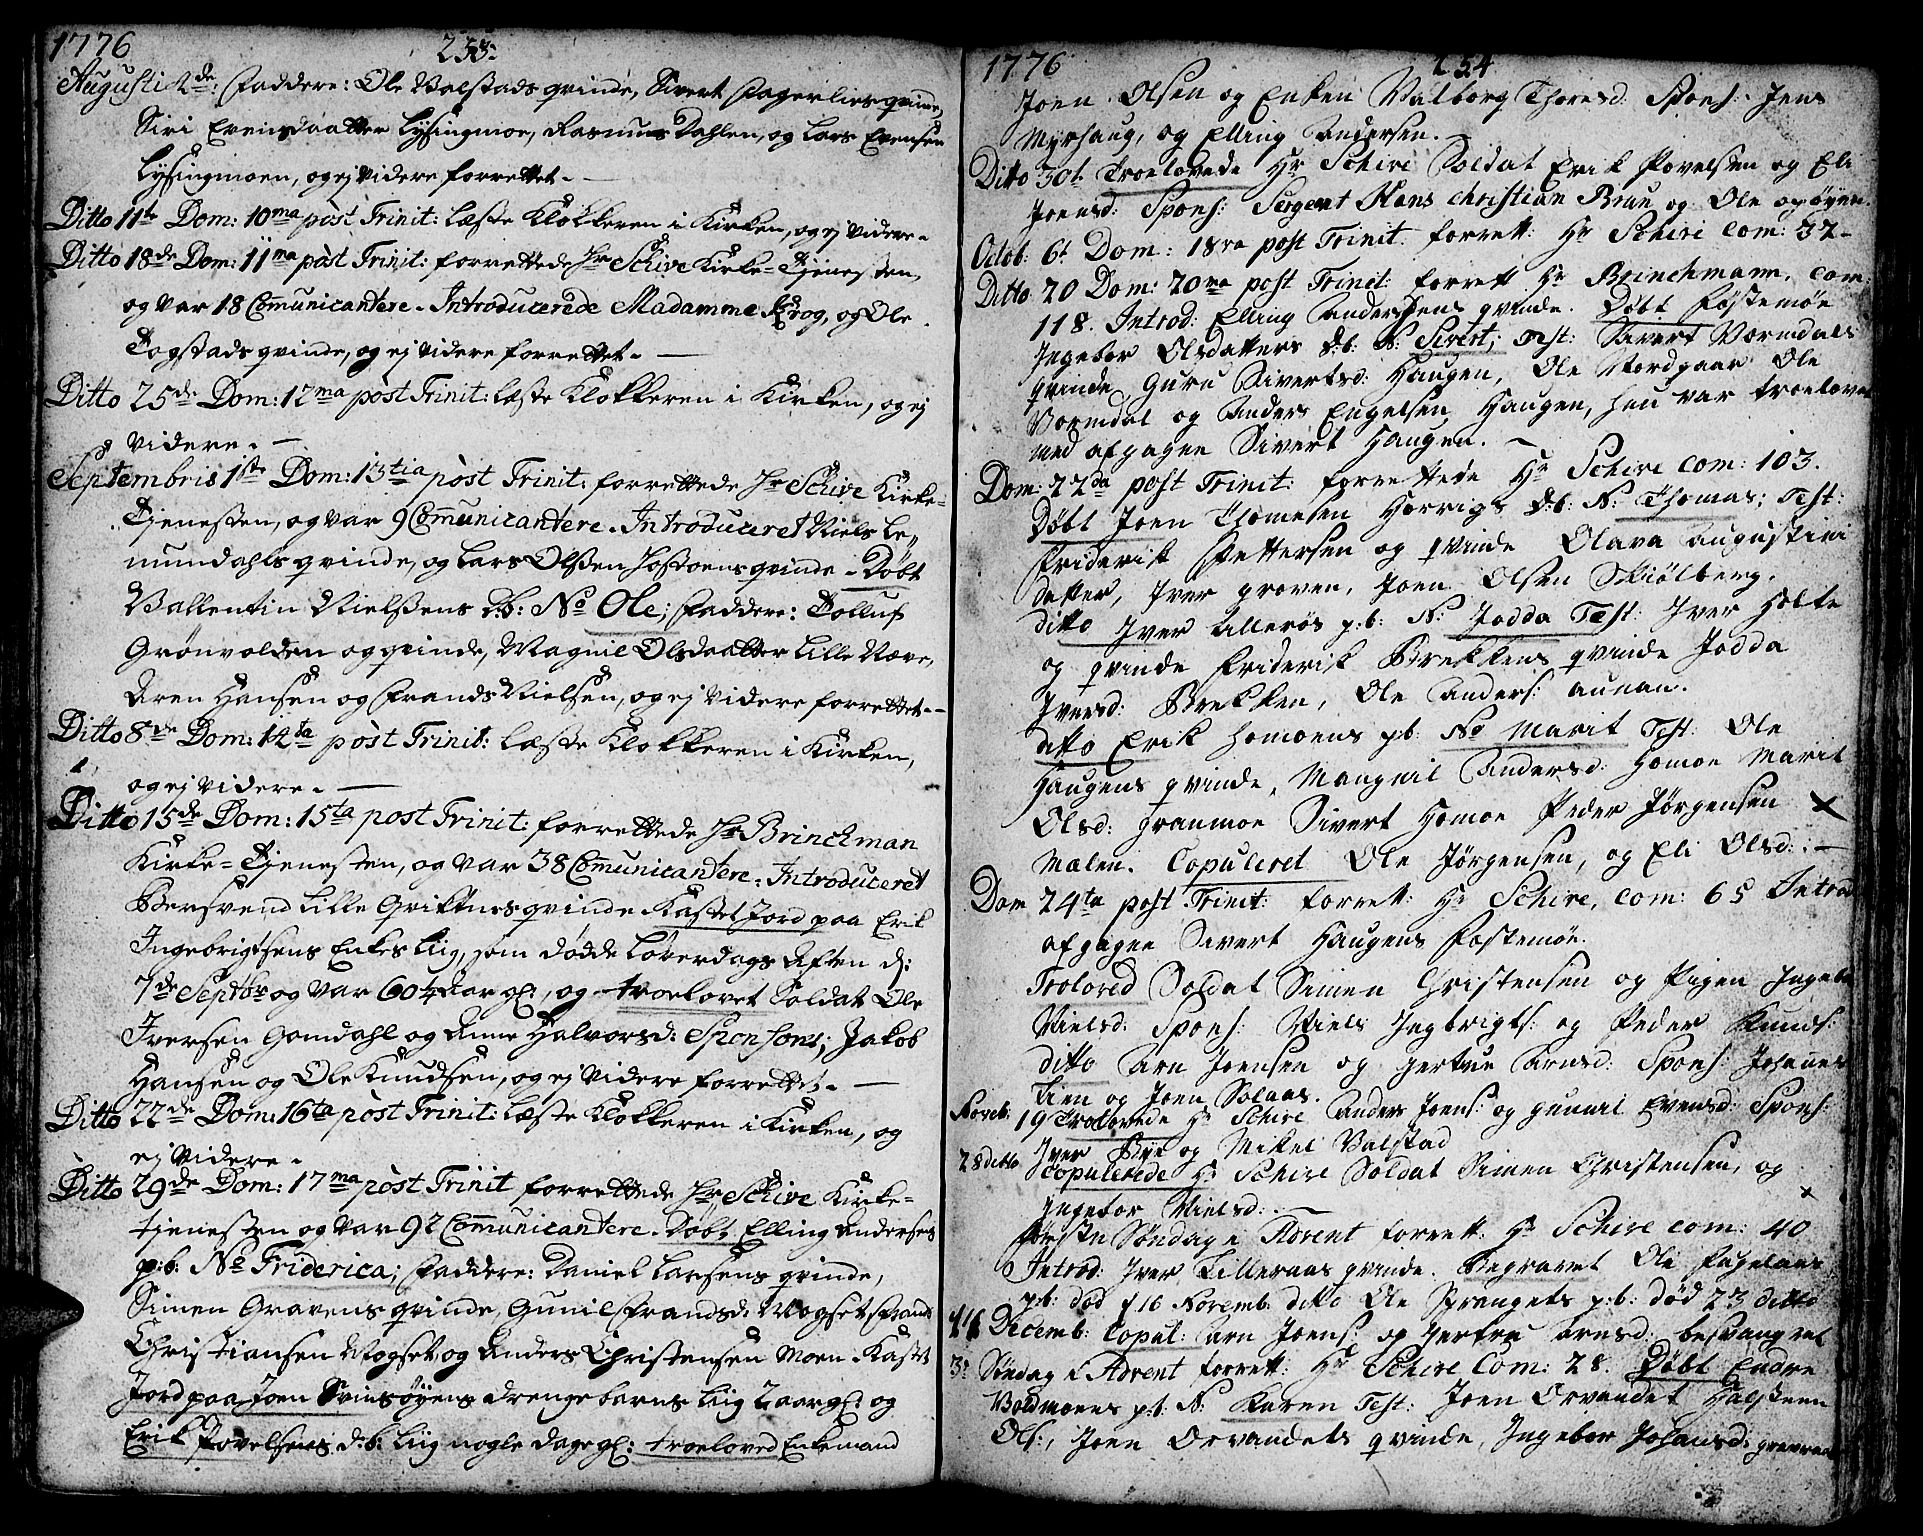 1776 253.
Augusti 2de: Faddere: Ole Valstads qvinde, Sivert Fagerlies qvinde,
Siri Evensdaatter Lysingmoe, Rasmus Dahlen, og Lars Evensen
Lysingmoen, og ej videre forrettet. —
Ditto 11te Dom: 10ma pòst Trinit: læste Klokkeren i Kirken, og ej videre.
Ditto 18de Dom: 11ma pòst Trinit: forrettede Hr Schive Kirke-Tjenesten,
og var 18 Communicantere. Introducerede Madamme Krog, og Ole
Togstads qvinde, og ej videre forrettet. —
Ditto 25de Dom: 12ma pòst Trinit: læste Klokkeren i Kirken, og ej
videre. —
Septembris 1ste Dom: 13tia pòst Trinit: forrettede Hr Schive Kirke-
Tjenesten, og var 9 Communicantere. Introduceret Niels Le-
mundahls qvinde, og Lars Olssen Hostoens qvinde. Døbt
Vallentin Nielssens d:b: No Ole; Faddere: Tolluf
Grønvolden og qvinde, Magnil Olsdaatter Lille Næve,
Aren Hansen og Frands Nielsen, og ej videre forrettet. —
Ditto 8de Dom: 14ta pòst Trinit: læste Klokkeren i Kirken,
og ej videre. —
Ditto 15de Dom: 15ta pòst Trinit: forrettede Hr Brinchman
Kirke-Tjenesten, og var 38 Communicantere. Introduceret
Bersvend Lille Griffnes qvinde. Kastet Jord paa Erik
Ingebrigtsens Enkes Liig, som dødde Løverdags Aften d:
7de Septbr og var 60 1/4 Aar gl:, og troelovet Soldat Ole
Iversen Gomdahl og Anne Halvorsd: Sponsons; Jakob
Hansen og Ole Knudsen, og ej videre forrettet. —
Ditto 22de Dom: 16ta pòst Trinit: læste Klokkeren i Kirken, og
ej videre.
Ditto 29de Dom: 17ma pòst Trinit forrettede Hr Schive Kirke-
tjenesten og var 92 Communicantere. Døbt Elling Andersens
p:b: No Friderica; Faddere: Daniel Larsens qvinde,
Simen Gravens qvinde, Gunil Frandsd: Mogset, Frands
Christiansen Mogset, og Anders Christensen Moen. Kastet
Jord paa Joen Svinsøyens drenge barns Liig 2 aar gl: og
Erik Povelsens d:b: Liig nogle dage gl: troeloved Enkemand
1776 254
Joen Olsen og Enken Valborg Thoresd: Spons: Jens
Myrhaug, og Elling Andersen. —
Ditto 30t Troelovede Hr Schive Soldat Erik Povelsen og Eli
Joensd: Spons: Sergeant Hans Christian Brun og Ole opøyen.
Octob: 6t Dom: 18va post Trinit: forrett: Hr Schive Com: 32 –
Ditto 20 Dom: 20ma post Trinit: forrett Hr Brinchmann, Com:
118. Introd: Elling Andersens qvinde. Døbt Fæstemøe
Ingebor Olsdatters d:b: N: Sivert; Test: Sivert Vormdals
qvinde, Guru Sivertsd: Haugen, Ole Nordgaar Ole
Vormdal og Anders Engelsen Haugen, hun var troelovet
med afgagne Sivert Haugen. —
Dom: 22da post Trinit: forrettede Hr Schive Com: 103.
Døbt Joen Thomesen Horrigs d:b: N: Thomas; Test:
Friderik Pettersen og qvinde Olava augustini
datter, Iver groven, Joen Olsen Skiølberg.
ditto Iver Lillerøs p:b: N: Jodda Test: Iver Holte
og qvinde Friderik Brekkens qvinde Jodda
Iversd: Brekken, Ole Anders: aunan.
ditto Erik Homoens p:b: No Marit Test: Ole
Haugens qvinde, Mangnil Andersd: Homoe Marit
Olsd: Granmoe Sivert Homoe Peder Jørgensen
Malen. Copuleret Ole Jørgensen, og Eli Olsd: —
Dom 24ta post Trinit: forrett: Hr Schive, Com: 65 Introd
afgagne Sivert Haugens Fæstemøe.
Troloved Soldat Simen Christensen og Pigen Ingebor
Nielsd: Spons: Niels Ingbrigts: og Peder Knuds:
ditto Arn Joensen og Gertrue Arnsd: Spons: Johannes
Lien og Joen Solaas.
Noveb: 19 Trolovede Hr Schive Anders Joens: og Gunnil Evensd: Spons:
Iver Bye og Mikel Valstad
28 ditto Copulerede Hr Schive Soldat Simen Christensen, og
Ingebor Nielsd: —
første Søndag i Advent forrett: Hr Schive Com: 40
Introd: Iver Lilleraas qvinde. Begravet Ole
p:b: død d 16 Novemb: ditto Ole p:b: død 23 ditto
Decemb: Copul: Arn Joens: og Gertru Arnsd: besvangret
3die Søndag i Advent forrett: Hr Schive Com: 28. Døbt Endre
Voldmoens p:b: N: Karen Test: Joen Orvandet Halsteen
Ols:, Joen Orvandets qvinde, Ingebor Johansd: